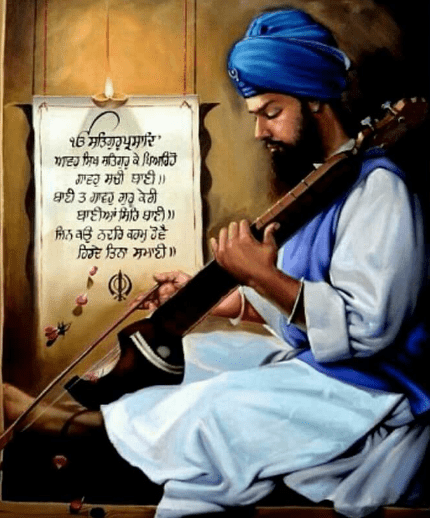 ੴ ਸਤਿਗੁਰਪ੍ਰਸਾਦਿ
ਆਵਹੁ ਸਿਖ ਸਤਿਗੁਰੂ ਕੇ ਪਿਆਰਿਹੋ
ਗਾਵਹੁ ਸਚੀ ਬਾਣੀ॥
ਬਾਣੀ ਤ ਗਾਵਹੁ ਗੁਰੂ ਕੇਰੀ
ਬਾਣੀਆਂ ਸਿਰਿ ਬਾਣੀ॥
ਜਿਨ ਕਉ ਨਦਰਿ ਕਰਮੁ ਹੋਵੈ
ਹਿਰਦੇ ਤਿਨਾ ਸਮਾਣੀ॥